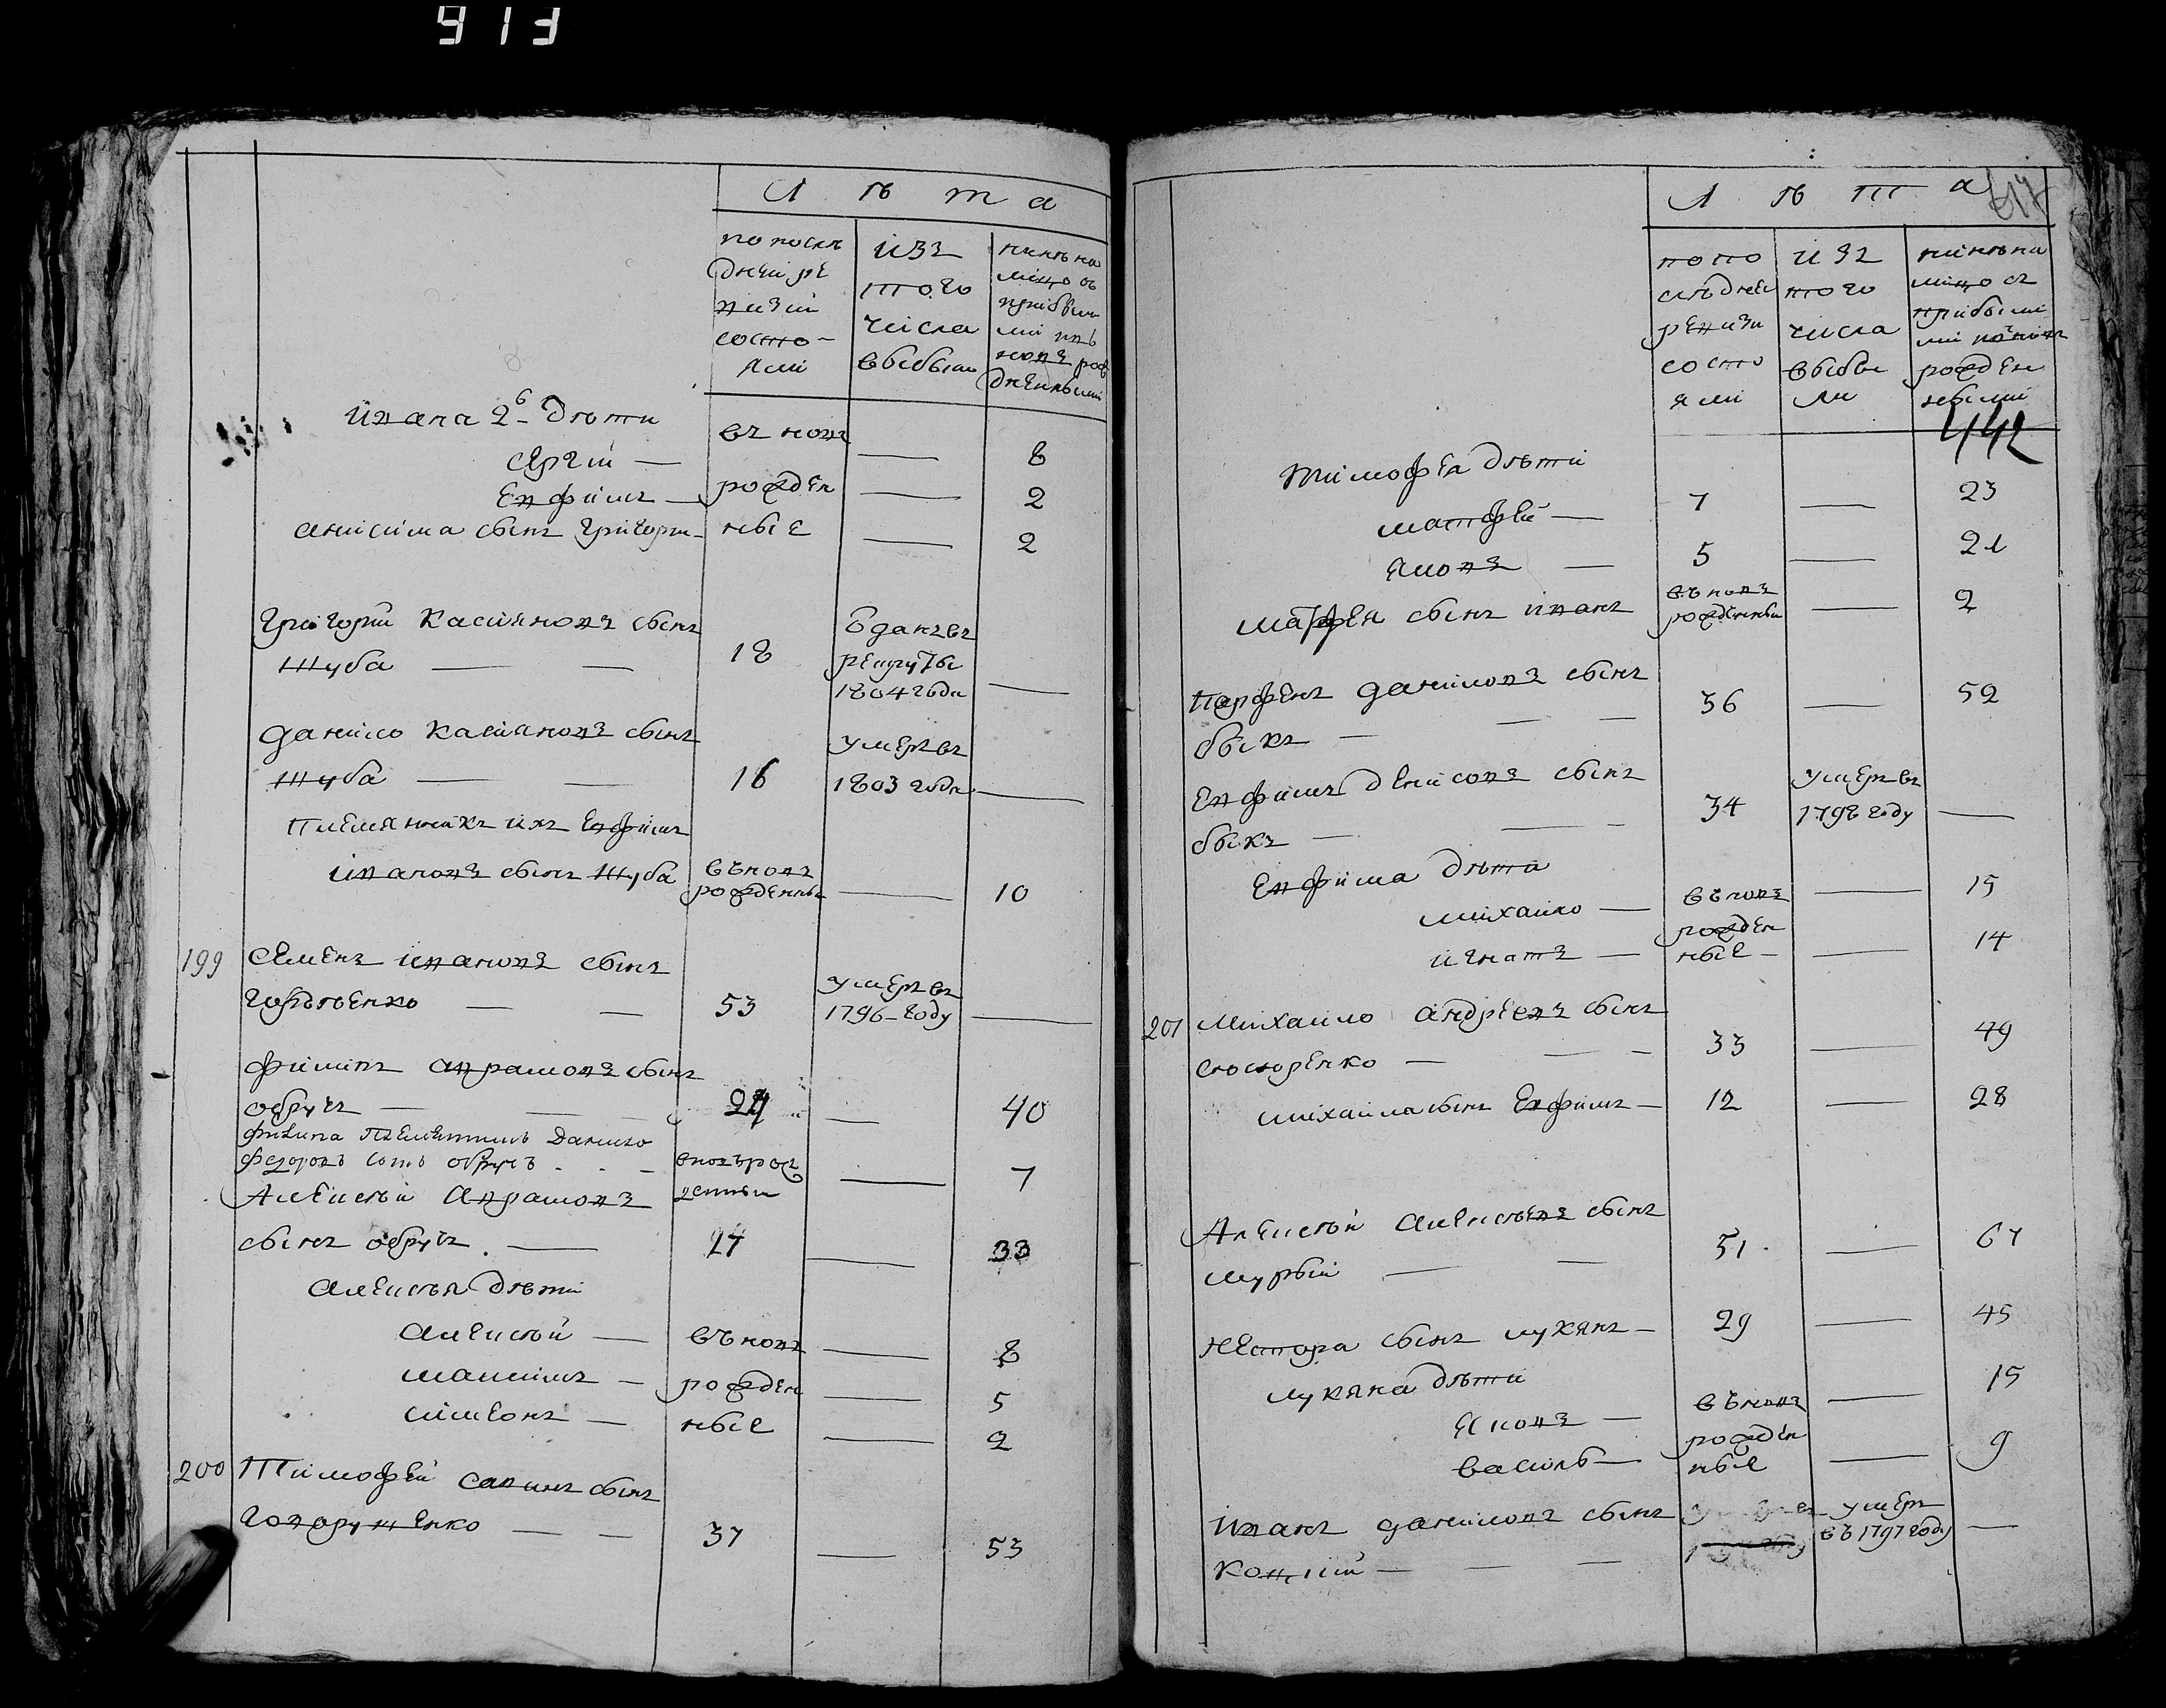 913
Л ѣ т а
по послѣ
дней ре
визіи
состо-
яли
изъ
того
числа
выбыли
нинѣ на
лицо съ
прибылы
ми
новъ рож
денными
Ивана 2й дѣти
въ новъ
Сергій — — 8
Евфимъ — рожден — 2
Анисима сынъ Григори- ные — 2
Григорій Касияновъ сынъ
Шуба — — 18
Оданъ въ
рекруты
1804 года —
Данило Касияновъ сынъ
Шуба — — 16
умеръ въ
1803 года —
Племянникъ ихъ Евфимъ
Ивановъ сынъ Шуба
въ новъ
рожденны — 10
199 Семенъ Ивановъ сынъ
Горбтенко — — 53
умеръ въ
1796 году —
Филипъ Аврамовъ сынъ
обручъ — — — 24 — 40
Филипа Данило
Федоровъ сынъ обручъ - - -
вновърож
денны — 7
Алексѣй Аврамовъ
сынъ обручъ. — 17 — 33
Алексѣя дѣти
Алексѣй — въ новъ — 8
Максимъ — рожден — 5
Симеонъ — ные — 2
200 Тимофей Савинъ сынъ
Говорущенко — — 37 — 53
417
Л ѣ т а
по по
слѣдней
ревизи
состо
яли
изъ
того
числа
выбы
ли
нинѣ на
лицо съ
прибылы
ми
рожден
ными
442
Тимофея дѣти
Матфей — 7 — 23
Яковъ — 5 — 21
Матфея сынъ Иванъ
въ новъ
рожденны — 2
Парфенъ Даниловъ сынъ
быкъ — — — 36 — 52
Евфимъ Денисовъ сынъ
быкъ — — — 34
умеръ въ
1798 году —
Евфима дѣти
Михайло — въ новъ — 15
рожден
Игнатъ — ные — — 14
201 Михайло Андреевъ сынъ
Сюсюренко — — — 33 — 49
Михайла сынъ Евфимъ — 12 — 28
Алексѣй Алексѣевъ сынъ
Мурый — — 51 — 67
Нестора сынъ Лукянъ — 29 — 45
Лукяна дѣти
Яковъ — въ новъ — 15
рожден
Василь — ные — 9
Иванъ Даниловъ сынъ
умеръ
въ 1797 году —